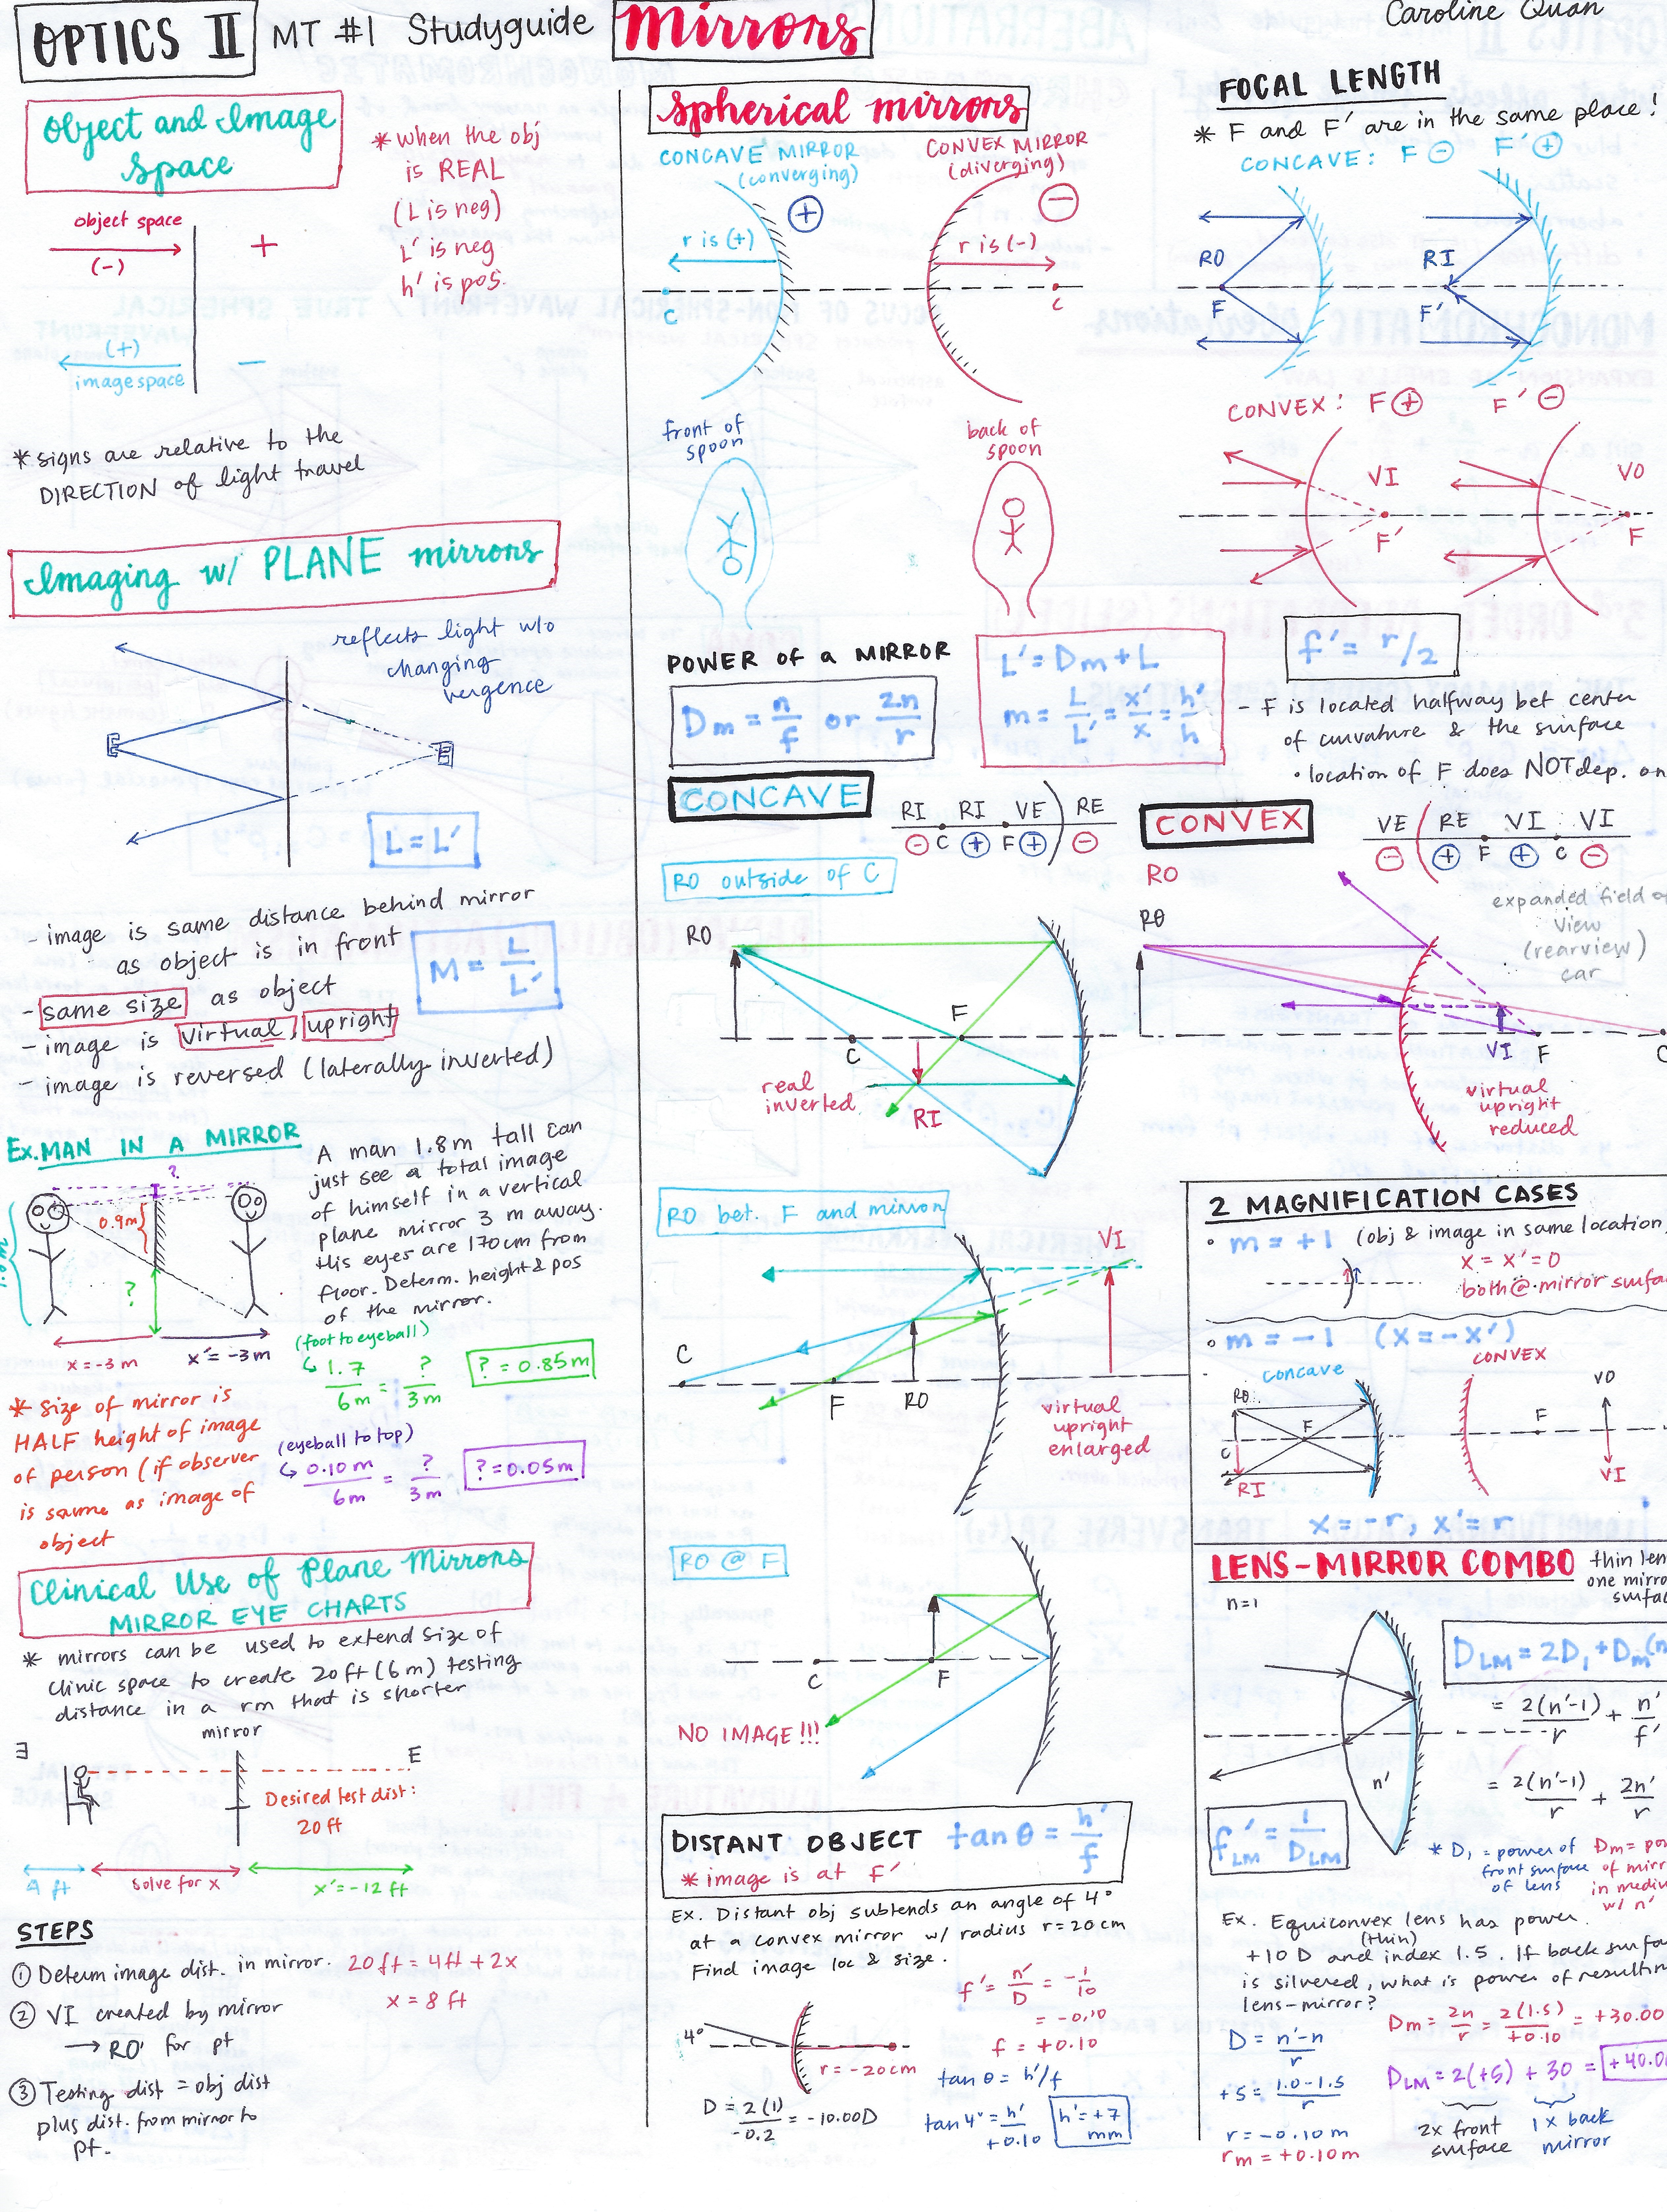 OPTICS II MT #1 Studyguide Mirrors
Caroline Quan
Object and Image
Space
object space
(-)
+
(+)
image space
-
* when the obj
is REAL
(L is neg)
L' is neg
h' is pos.
* signs are relative to the
DIRECTION of light travel
Imaging w/ PLANE mirrors
reflects light w/o
changing
vergence
L = L'
- image is same distance behind mirror
as object is in front
- same size as object
- image is virtual, upright
- image is reversed (laterally inverted)
M = L/L'
Ex. MAN IN A MIRROR
?
0.9m
?
x=-3m
x'=-3m
A man 1.8m tall can
just see a total image
of himself in a vertical
plane mirror 3 m away.
His eyes are 170cm from
floor. Determ. height & pos
of the mirror.
(foot to eyeball)
↳ 1.7/6m = ?/3m
? = 0.85m
(eyeball to top)
↳ 0.10m/6m = ?/3m
? = 0.05m
* Size of mirror is
HALF height of image
of person (if observer
is same as image of
object
Clinical Use of Plane Mirrors
MIRROR EYE CHARTS
* mirrors can be used to extend size of
clinic space to create 20ft (6m) testing
distance in a rm that is shorter
mirror
E
E
Desired test dist:
20 ft
4 ft
solve for x
x'=-12 ft
STEPS
① Determ image dist. in mirror. 20ft = 4ft + 2x
x = 8 ft
② VI created by mirror
→ RO' for pt
③ Testing dist = obj dist
plus dist. from mirror to
pt.
Spherical mirrors
CONCAVE MIRROR
(converging)
+
r is (+)
C
CONVEX MIRROR
(diverging)
-
r is (-)
C
front of
spoon
back of
spoon
POWER of a MIRROR
Dm = n/f or 2n/r
L' = Dm + L
m = L/L' = x'/x = h'/h
CONCAVE
RI RI VE RE
- C + F + -
RO outside of C
RO
C
F
real
inverted
RI
RO bet. F and mirror
VI
C
F
RO
virtual
upright
enlarged
RO @ F
C
F
NO IMAGE!!!
DISTANT OBJECT tan θ = h'/f
* image is at F'
Ex. Distant obj subtends an angle of 4°
at a convex mirror w/ radius r=20cm
Find image loc & size.
4°
r = -20cm
D = 2(1)/-0.2 = -10.00D
f' = n'/D = -1/10
= -0.10
f = +0.10
tan θ = h'/f
tan 4° = h'/+0.10
h' = +7
mm
FOCAL LENGTH
* F and F' are in the same place!
CONCAVE: F - F' +
RO
F
RI
F'
CONVEX: F + F' -
VI
F'
VO
F
f' = r/2
- F is located halfway bet center
of curvature & the surface
• location of F does NOT dep. on
CONVEX
VE RE VI VI
- + F + C -
RO
RO
expanded field of
view
(rearview)
car
VI
F
C
virtual
upright
reduced
2 MAGNIFICATION CASES
• m = +1 (obj & image in same location
x = x' = 0
both @ mirror surfa
• m = -1 (x = -x')
concave
CONVEX
RO
F
C
RI
F
VO
VI
x = -r, x' = r
LENS-MIRROR COMBO thin len
one mirro
surfa
n=1
n'
D_LM = 2D₁ + Dm(n
= 2(n'-1)/r + n'/f'
= 2(n'-1)/r + 2n'/r
f'_LM = 1/D_LM
* D₁ = power of
front surface
of lens
Dm = po
of mirr
in mediu
w/ n'
Ex. Equiconvex lens has power
(thin)
+10 D and index 1.5. If back surfa
is silvered, what is power of resultin
lens-mirror?
D = n'-n/r
+5 = 1.0-1.5/r
r = -0.10 m
rm = +0.10m
Dm = 2n/r = 2(1.5)/+0.10 = +30.00
D_LM = 2(+5) + 30 = +40.0
2x front
surface
1x back
mirror